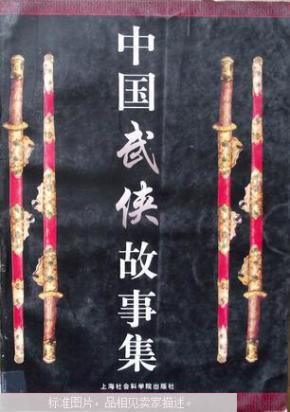 中国武侠故事集
上海社会科学院出版社
标准图片，品相见卖家描述。